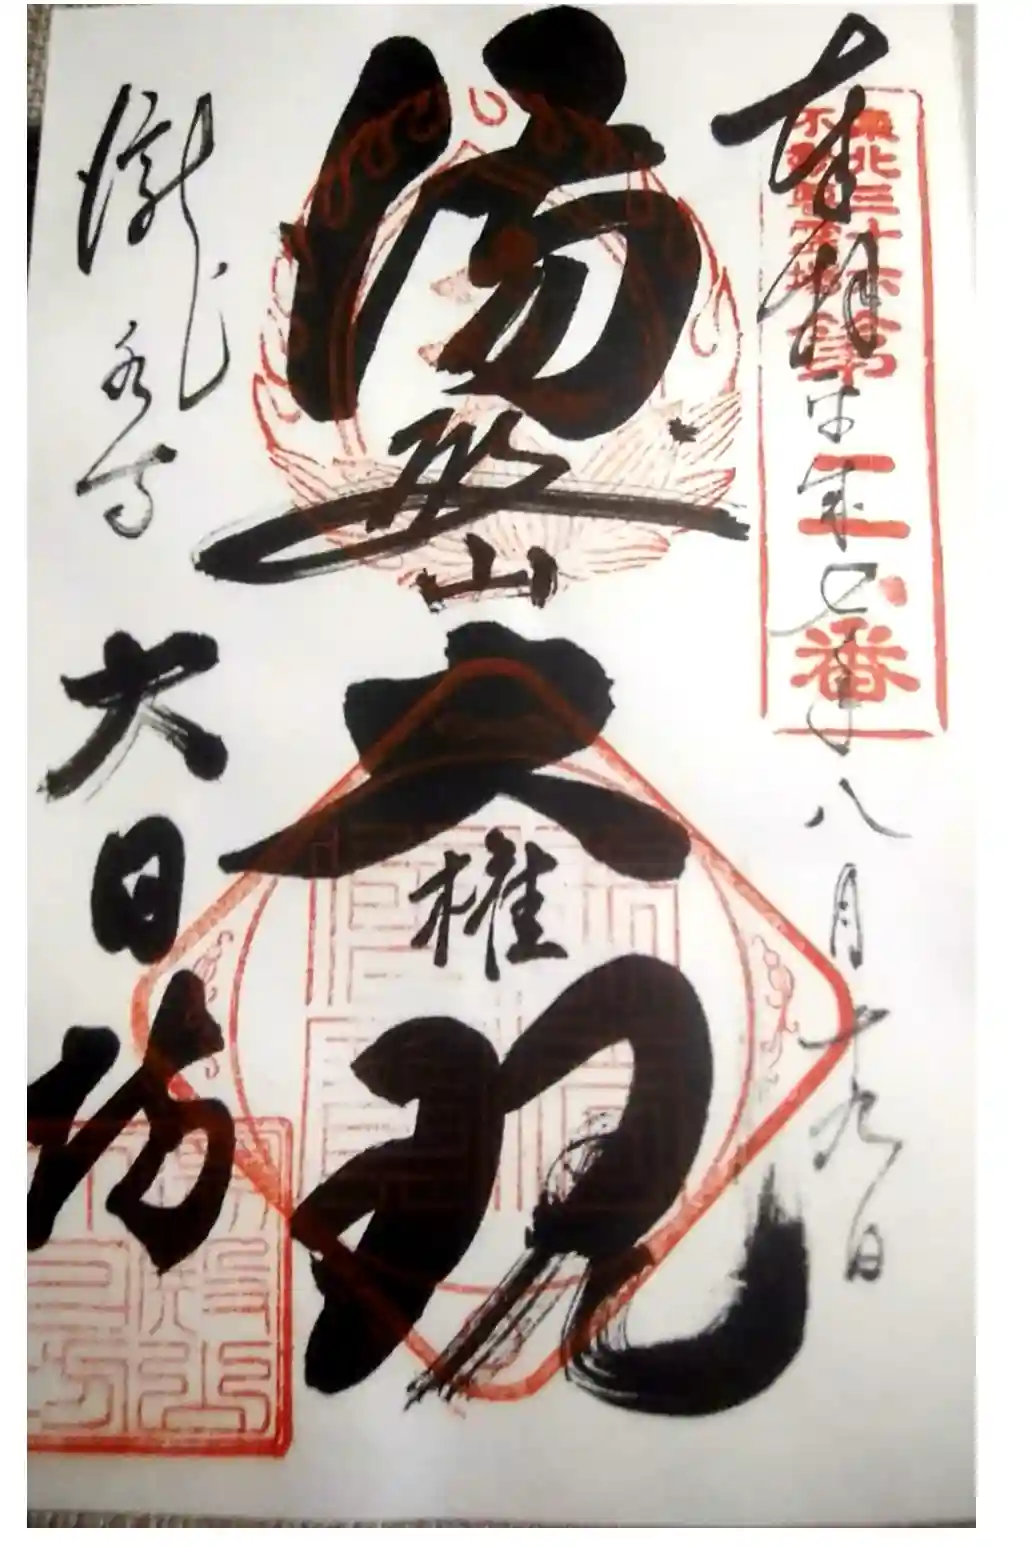 東北三十六
不動尊霊場
第二番
奉拝
平成
年八月十九日
湯殿山
大権現
瀧水寺
大日坊